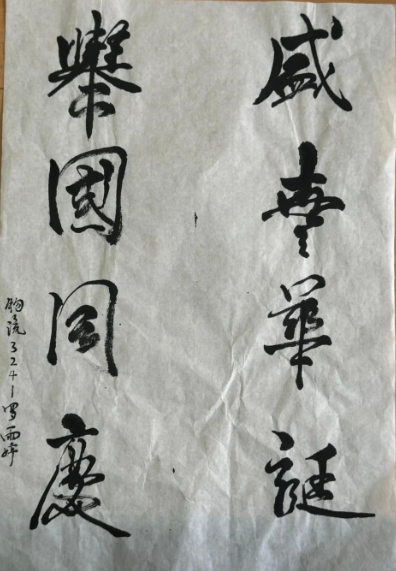 盛華誕
舉國同慶
物流3241罗雨婷